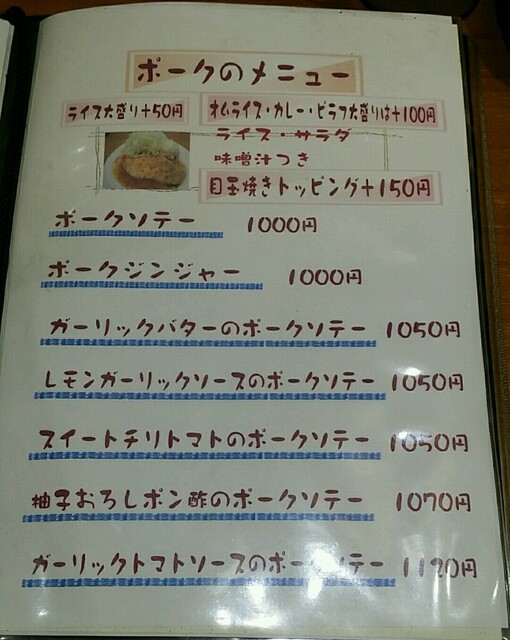 ポークのメニュー
ライス大盛り+50円
オムライス・カレー・ピラフ大盛りは+100円
ライス・サラダ
味噌汁つき
目玉焼きトッピング+150円
ポークソテー 1000円
ポークジンジャー 1000円
ガーリックバターのポークソテー 1050円
レモンガーリックソースのポークソテー 1050円
スイートチリトマトのポークソテー 1050円
柚子おろしポン酢のポークソテー 1070円
ガーリックトマトソースのポークソテー